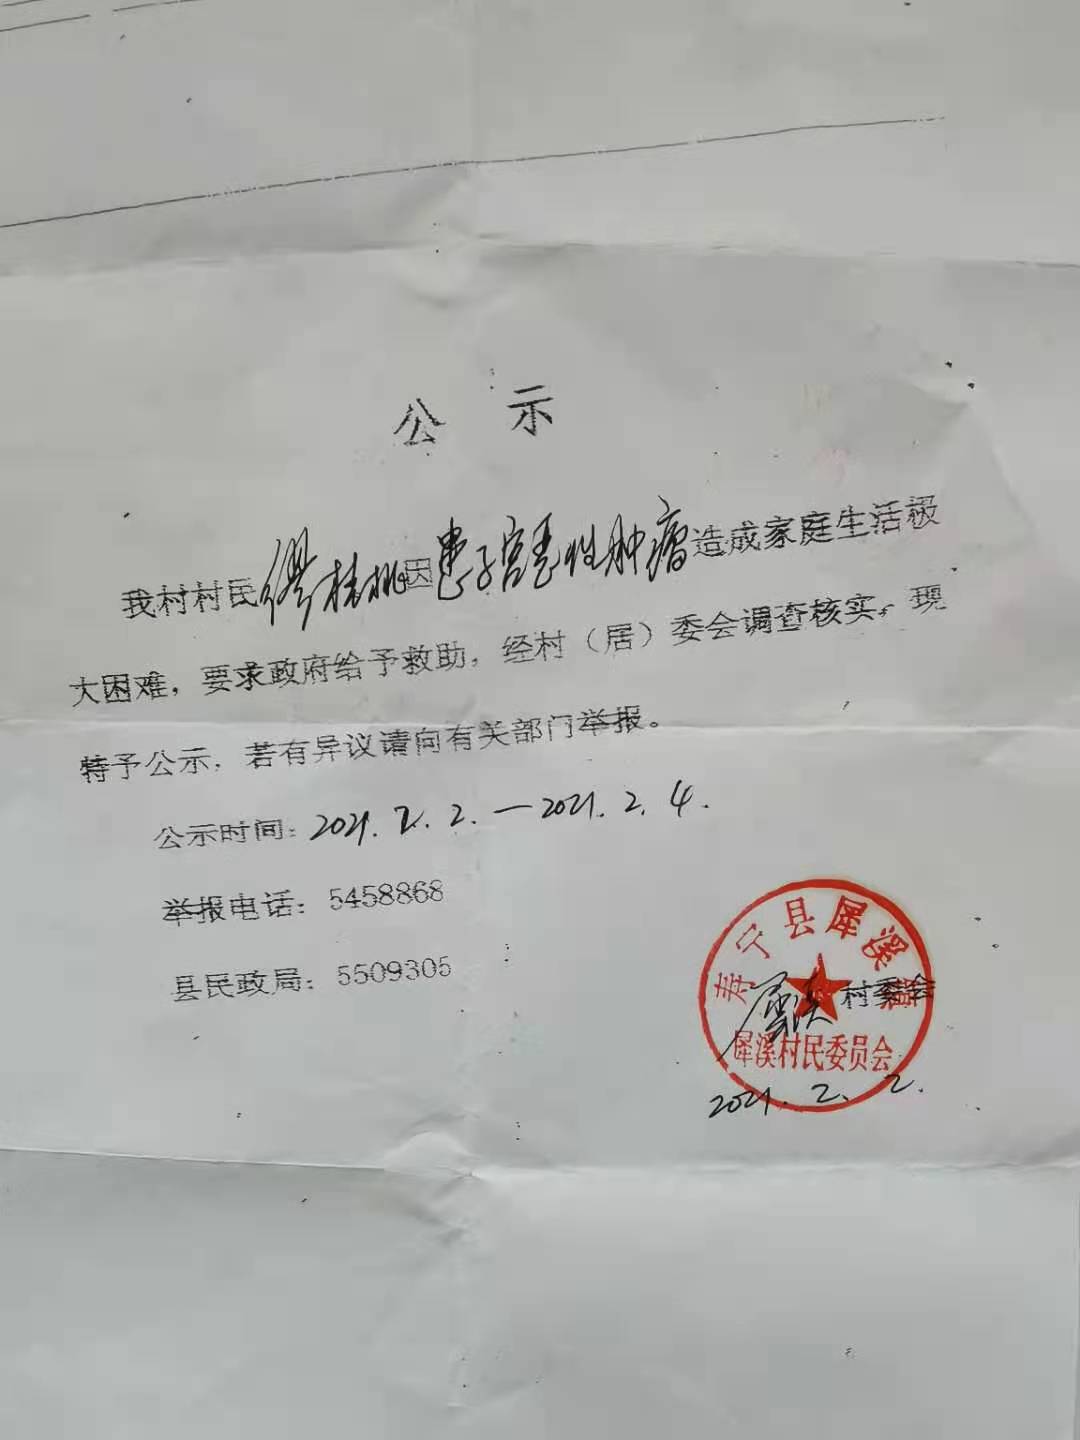 公 示
我村村民缪桂桃因患子宫恶性肿瘤造成家庭生活极
大困难，要求政府给予救助，经村（居）委会调查核实，现
特予公示，若有异议请向有关部门举报。
公示时间：2021.2.2.—2021.2.4.
举报电话：5458868
县民政局：5509305
寿宁县犀溪镇
犀溪村委会
犀溪村民委员会
2021.2.2.